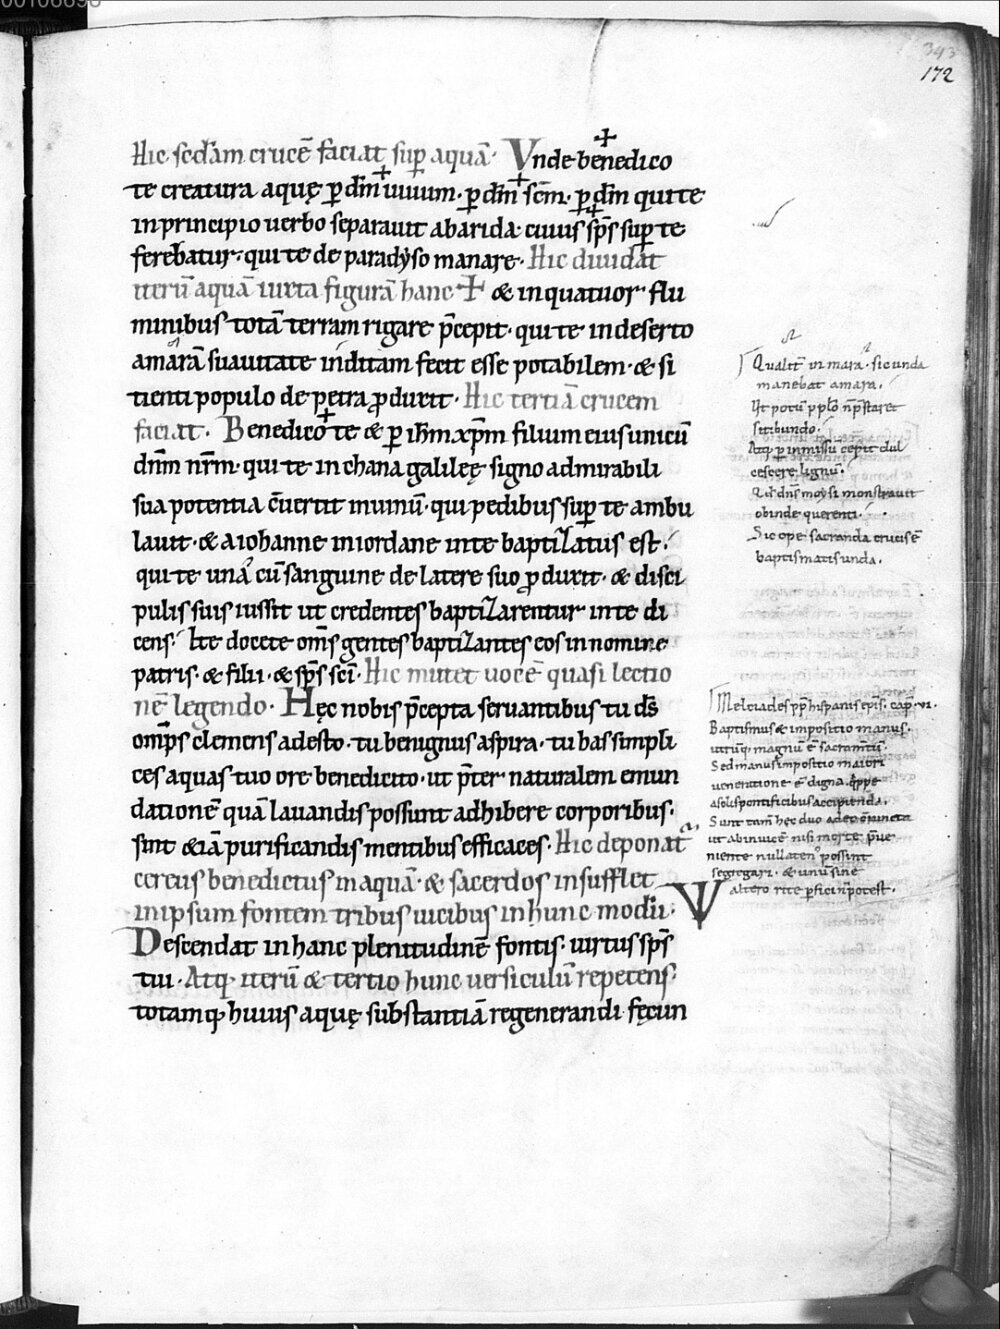 343
172
Hic scd̄am crucē faciat sup̱ aquā· Vnde benedico
te creatura aquę ꝑ dm̄ uiuum· ꝑ dm̄ scm̄· ꝑ dm̄ qui te
in principio uerbo separauit abarida· cuius sps̄ sup̱ te
ferebatur· qui te de paradẏso manare· Hic diuidat
iterū aquā iuxta figurā hanc ✝ & in quatuor flu
minibus totā terram rigare p̄cepit· qui te in deserto
amarā suauitate inditam fecit esse potabilem· & si
tienti populo de petra ꝓduxit· Hic tertiā crucem
faciat· Benedico te & ꝑ ihm̄ xp̄m filium eius unicū
dn̄m nr̄m· qui te in chana galileę signo admirabili
sua potentia c̄uertit inuinū· qui pedibus sup̱ te ambu
lauit· & a iohanne iniordane inte baptizatus est·
qui te unā cū sanguine de latere suo ꝓduxit· & disci
pulis suis iussit ut credentes baptizarentur inte di
cens· Ite docete om̄s gentes baptizantes eos in nomine
patris· & filii· & sps̄ sci· Hic mutet uocē quasi lectio
nē legendo· Hęc nobis p̄cepta seruantibus tu ds̄
omp̄s clemens adesto· tu benignus aspira· tu has simpli
ces aquas tuo ore benedicito· ut p̄ter naturalem emun
dationē quā lauandis possunt adhibere corporibus·
sint &iā purificandis mentibus efficaces· Hic deponat
cereus benedictus in aquā· & sacerdos insufflet
in ipsum fontem tribus uicibus in hunc modū· Ψ
Descendat in hanc plenitudinē fontis· uirtus sps̄
tui· Atq· iterū & tertio hunc uersiculū repetens·
totamq· huius aquę substantiā regenerandi fęcun
Qualit̄ in mara· sic unda
manebat amara·
Ut potū pp̄lo n̄ p̄staret
sitibundo·
Atq· ꝑ inmissū cepit dul
cescere lignū·
Qd̄ dn̄s moysi monstrauit
obinde querenti·
Sic ope sacranda crucis ē
baptismatis unda·
Melciades pp̄ hispanis epis̄· cap· vi·
Baptismus & impositio manus·
utrūq· magnū ē sacram̄tū·
Sed manus impositio maiori
ueneratione ē digna·
a solis pontificibus accipienda·
Sunt tam̄ hęc duo
ut abinuicē nisi morte p̄ue
niente nullaten᾽ possint
segregari· & unū sine
altero rite ꝑfici n̄ potest·